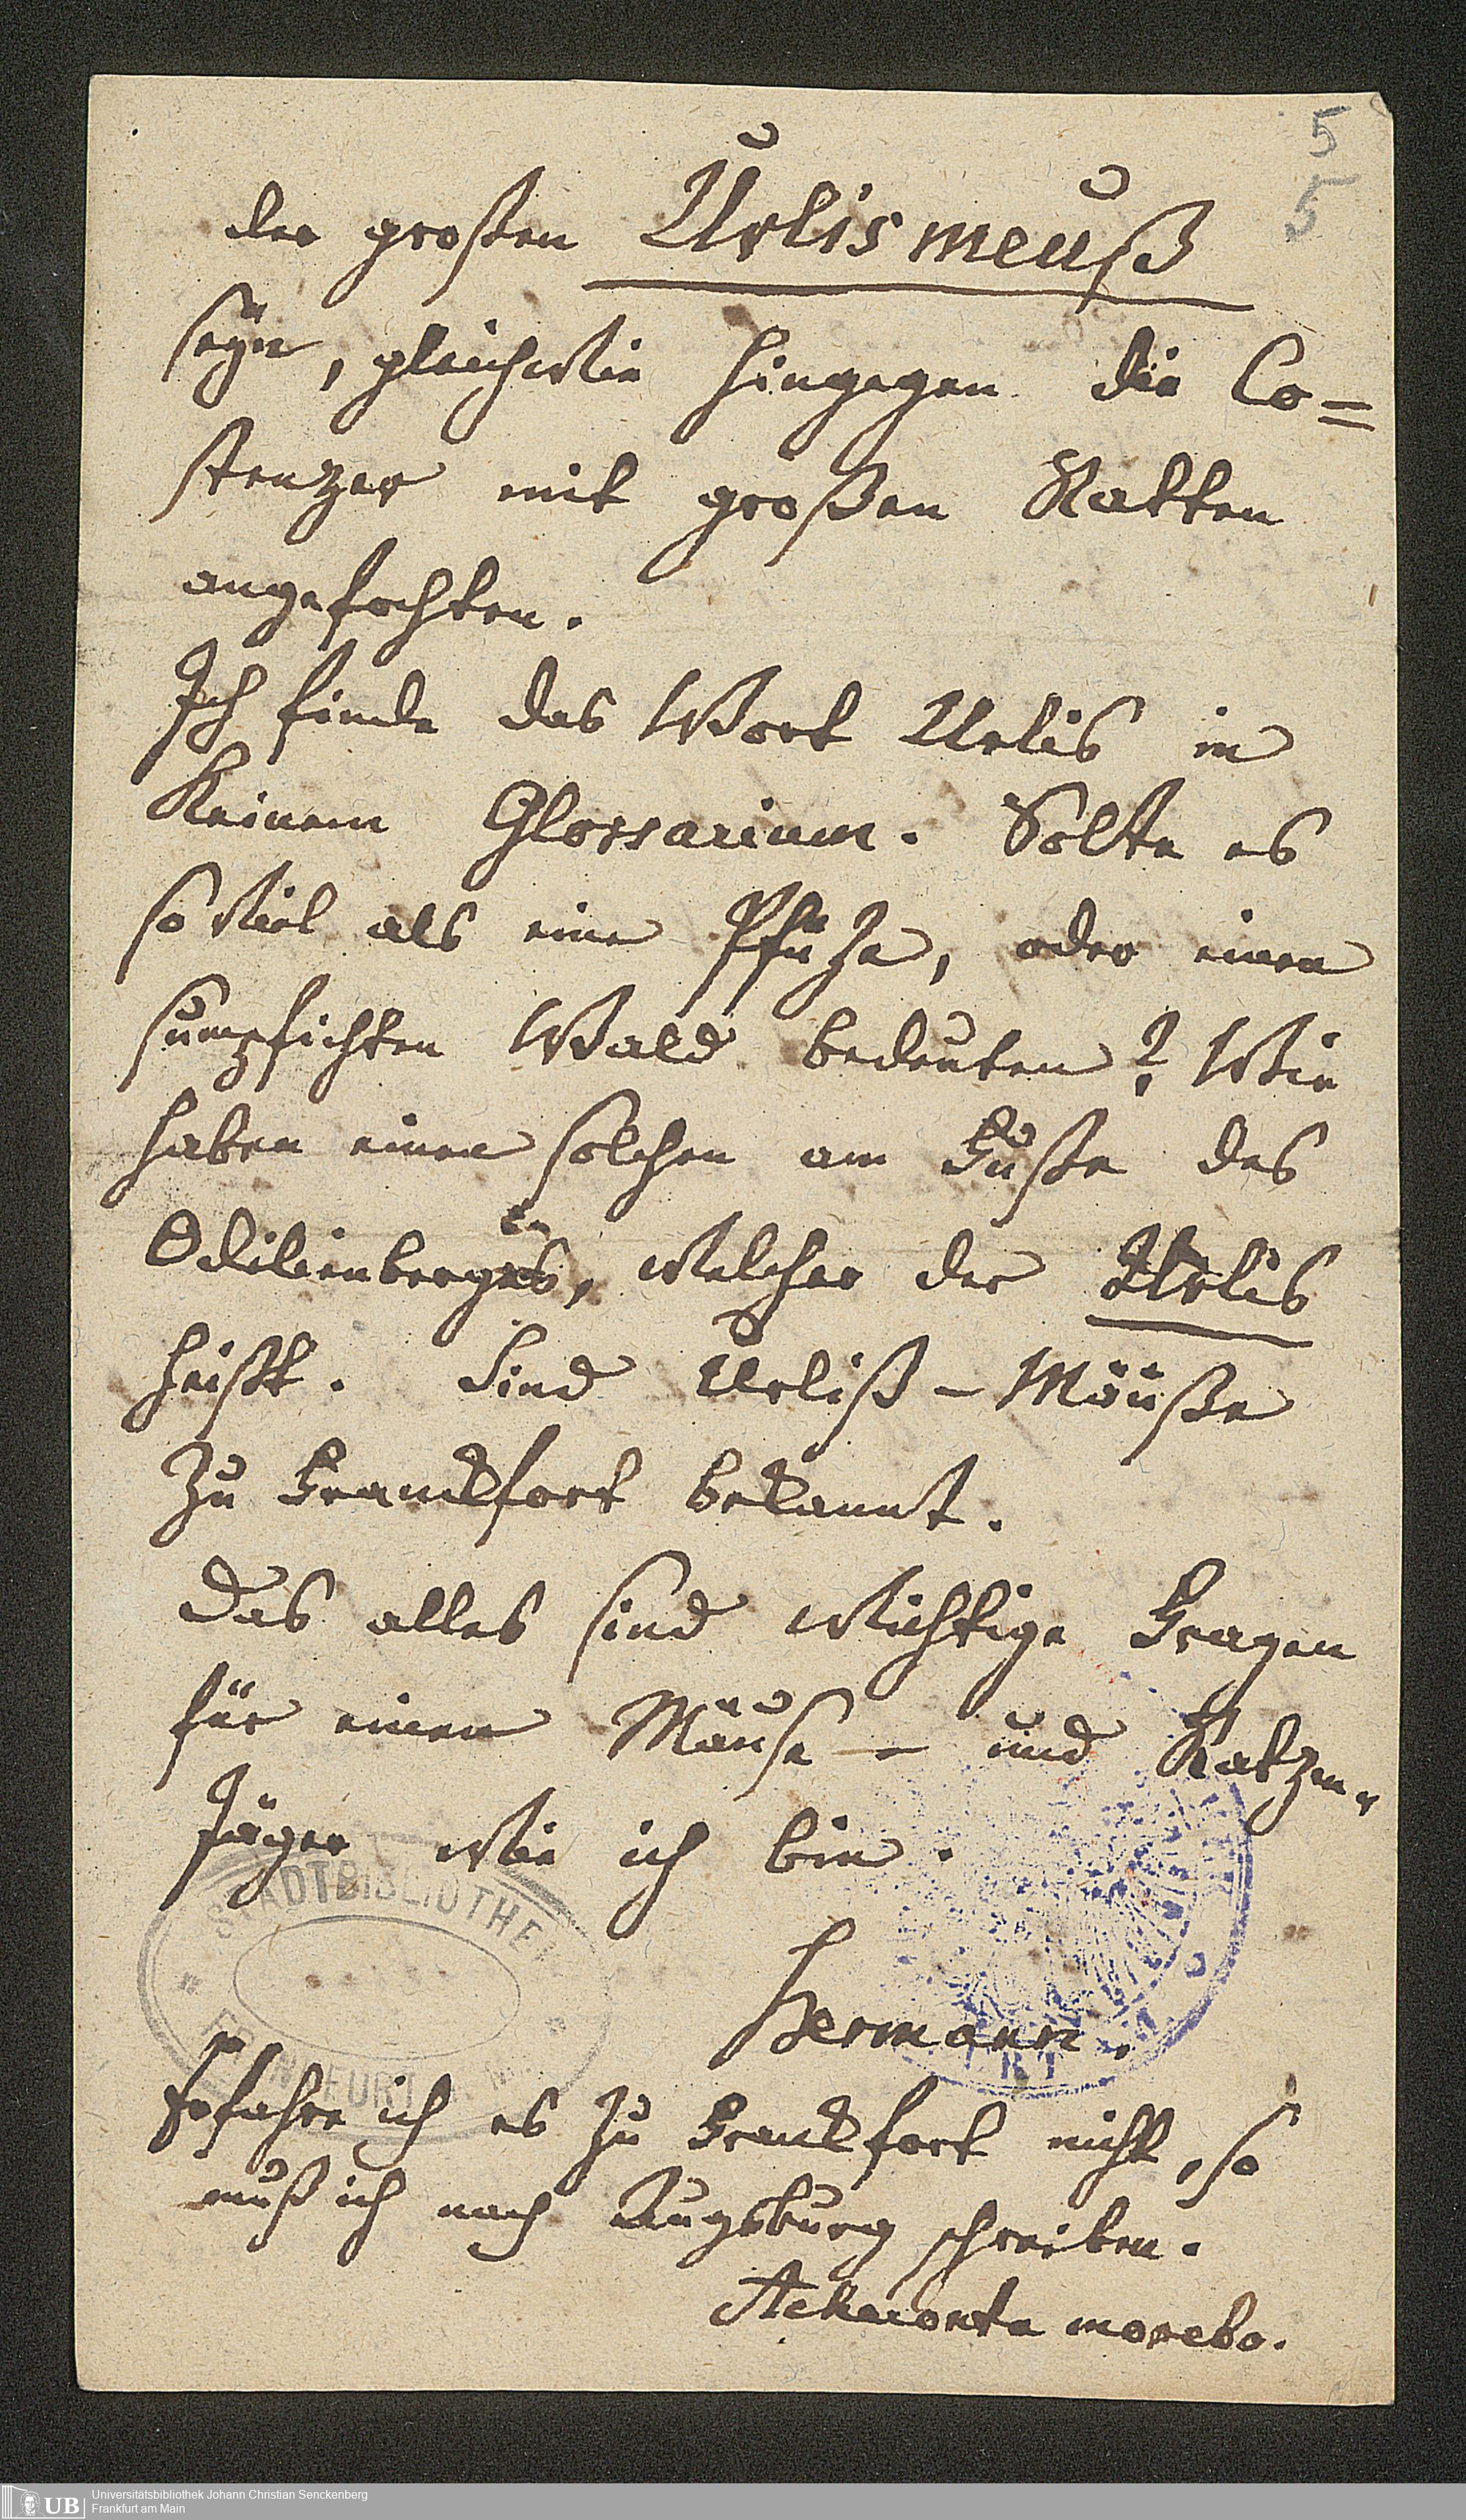 5
5
der großen Urlismeuß
seÿn, gleichwie hingegen die Co=
stenzer mit großen Ratten
angefochten.
Ich finde das Wort Urlis in
keinem Glossarium. Solte es
so viel als eine Pfüze, oder einen
sumpfichten Wald bedeuten? Wir
haben einen solchen am Fuße des
Odilienberges, welcher der Urlis
heißt. Sind Urliß-Mäuße
zu Franckfort bekannt.
Das alles sind wichtige Fragen
für einen Mäuse- und Ratzen-
Jäger wie ich bin.
Hermann.
Erfahre ich es zu Franckfort nicht, so
muß ich nach Augsburg schreiben.
STADTBIBLIOTHEK
FRANKFURT
Universitätsbibliothek Johann Christian Senckenberg
Frankfurt am Main
UB